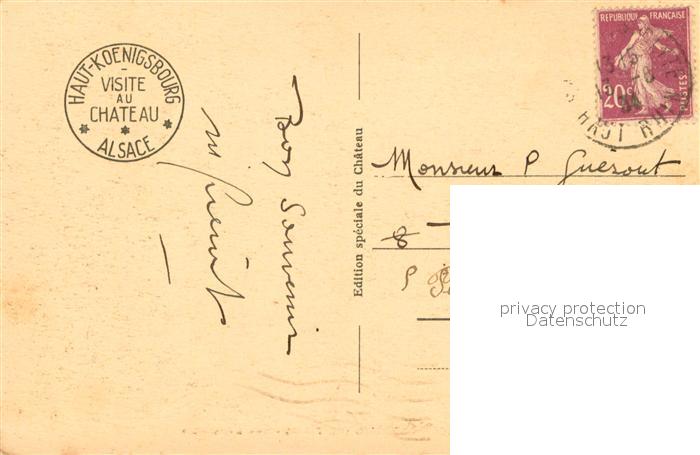 HAUT-KOENIGSBOURG
VISITE
AU
CHATEAU
ALSACE
Bon Souvenir
Edition spéciale du Château
REPUBLIQUE FRANÇAISE
20c
POSTES
HAUT RHIN
Monsieur P Guézout
8
privacy protection
Datenschutz